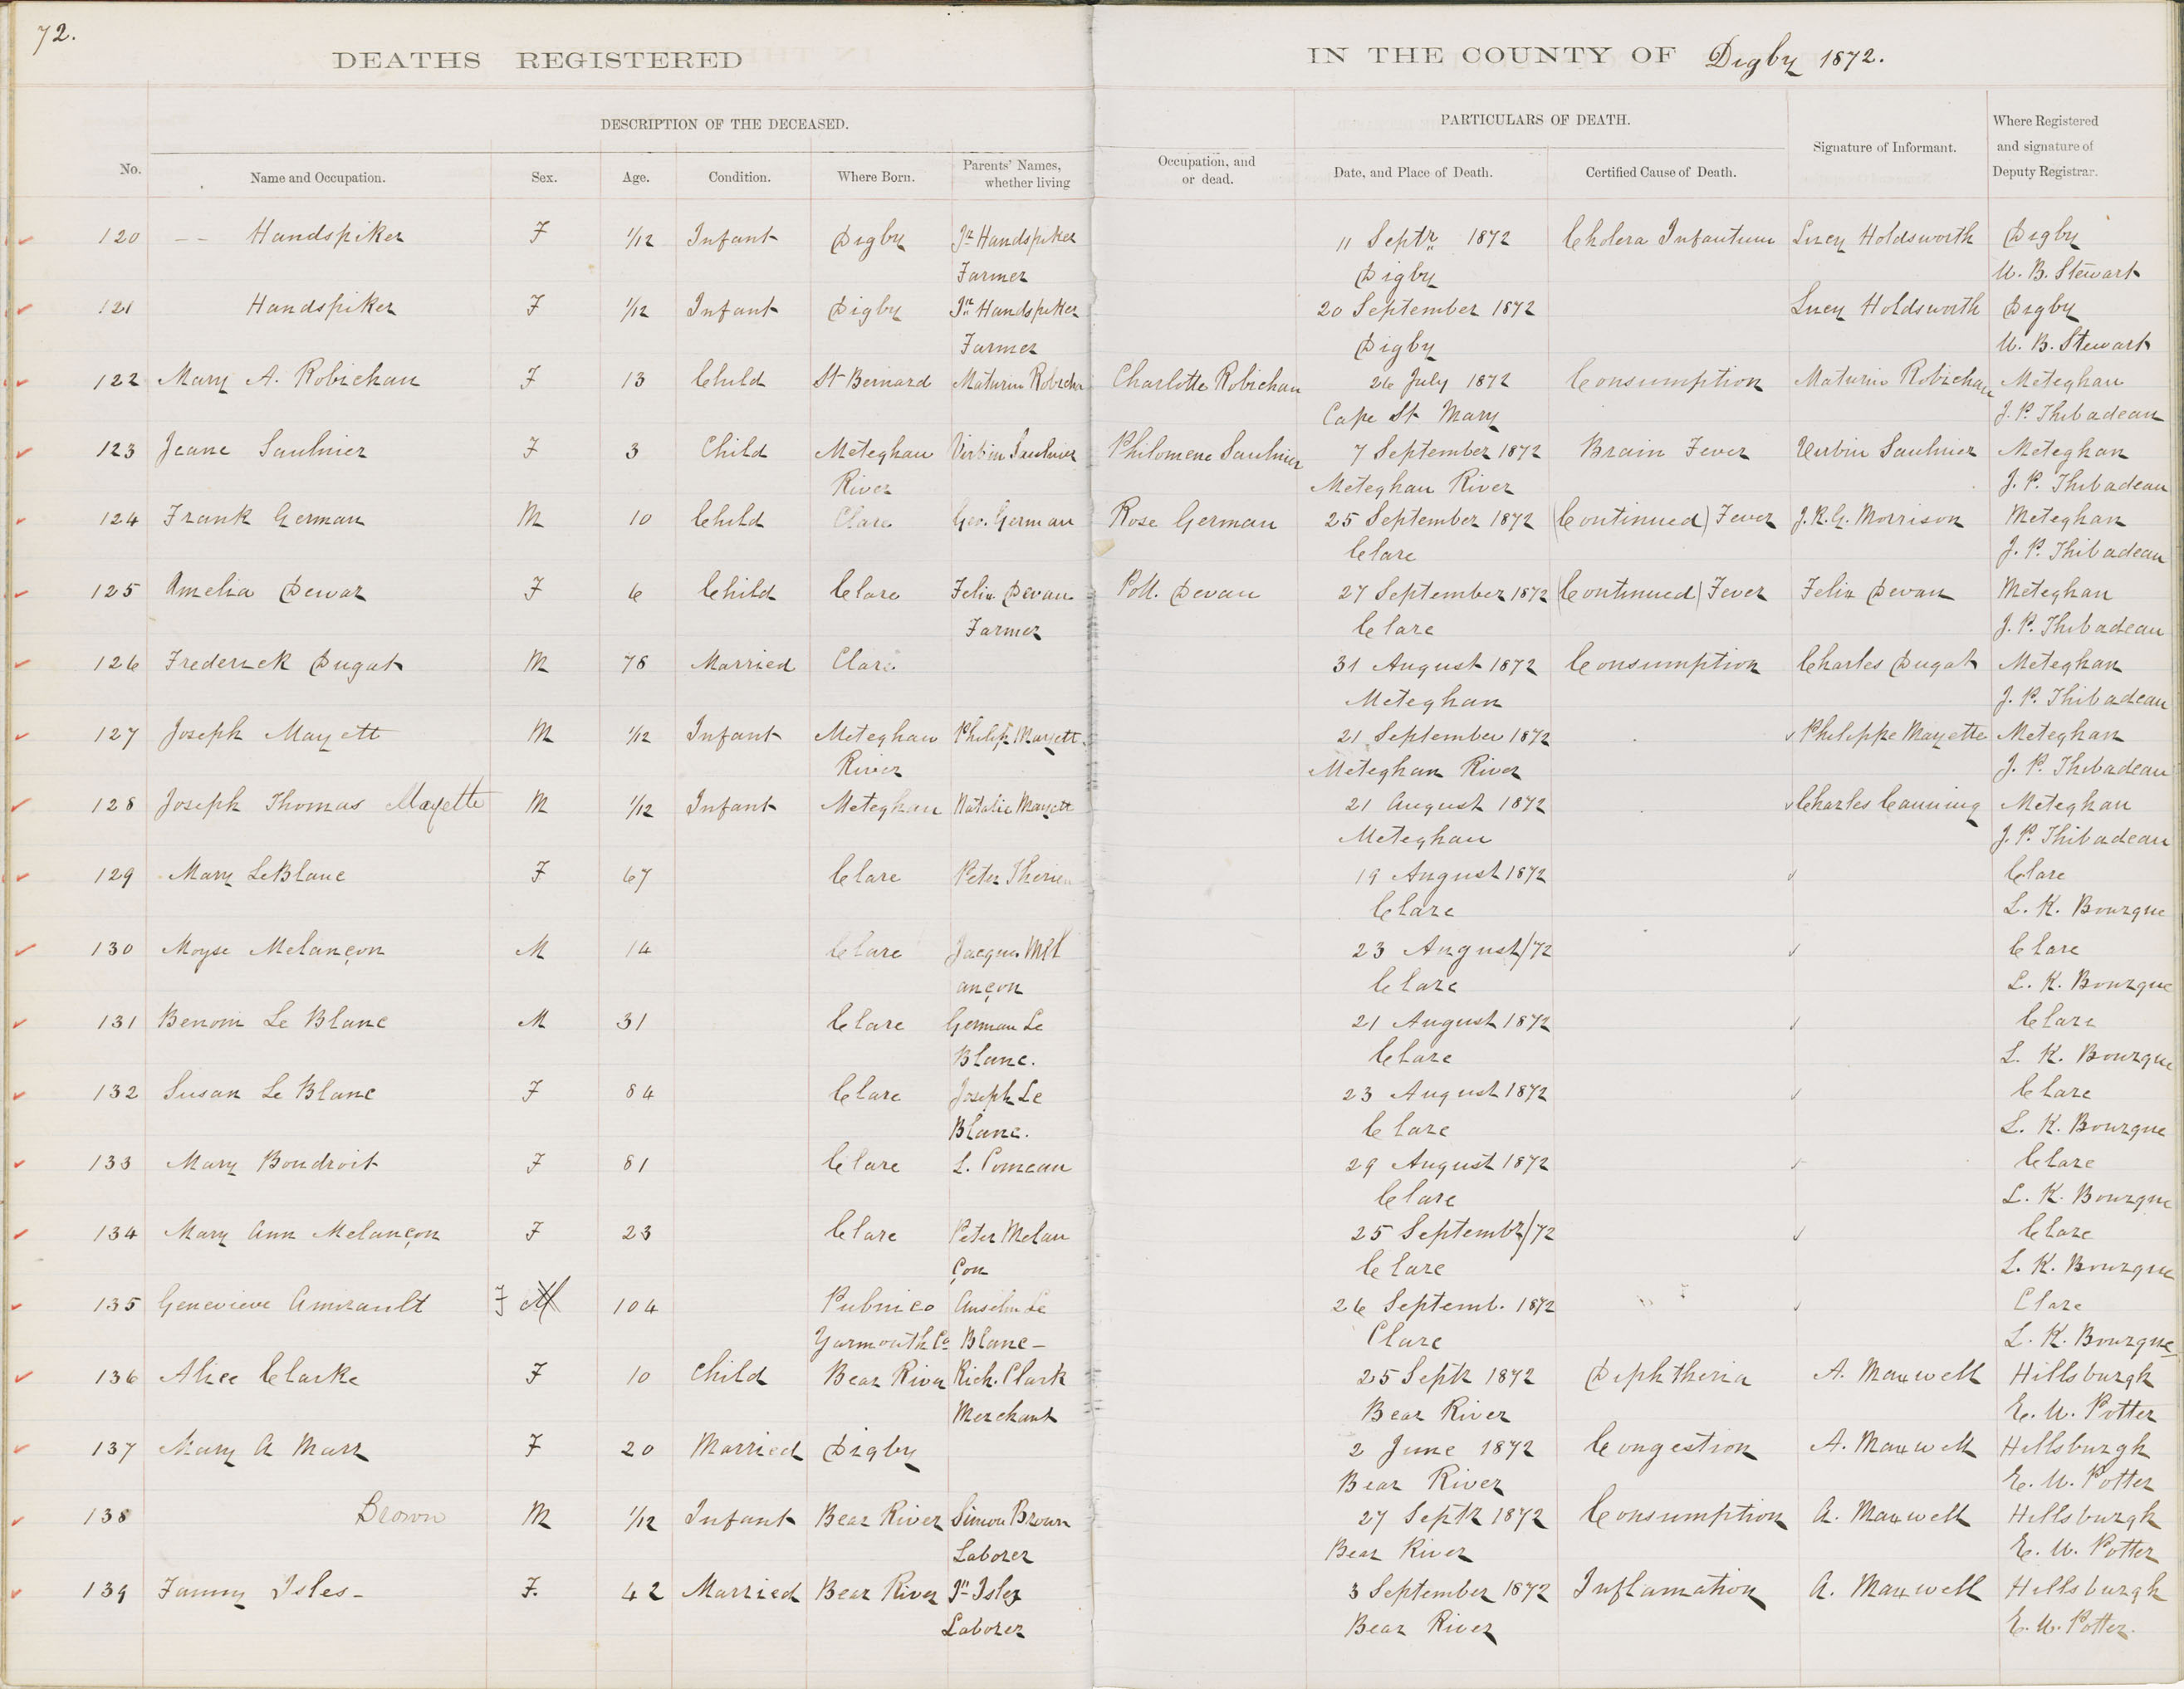 72.
DEATHS REGISTERED IN THE COUNTY OF Digby 1872.
DESCRIPTION OF THE DECEASED. PARTICULARS OF DEATH.
No. Name and Occupation. Sex. Age. Condition. Where Born. Parents' Names, whether living Occupation, and or dead. Date, and Place of Death. Certified Cause of Death. Signature of Informant. Where Registered and signature of Deputy Registrar.
120 -- Handspiker F 1/12 Infant Digby Jn Handspiker 11 Septr 1872 Cholera Infantum Lucy Holdsworth Digby
Farmer Digby W. B. Stewart
121 Handspiker F 1/12 Infant Digby Jn Handspiker 20 September 1872 Lucy Holdsworth Digby
Farmer Digby W. B. Stewart
122 Mary A. Robichau F 13 Child St Bernard Maturin Robichau Charlotte Robichau 26 July 1872 Consumption Maturin Robichau Meteghan
Cape St Mary J. P. Thibadeau
123 Jeane Saulnier F 3 Child Meteghan Urbin Saulnier Philomene Saulnier 7 September 1872 Brain Fever Urbin Saulnier Meteghan
River Meteghan River J. P. Thibadeau
124 Frank German M 10 Child Clare Geo. German Rose German 25 September 1872 (Continued) Fever J. R. G. Morrison Meteghan
Clare J. P. Thibadeau
125 Amelia Dewar F 6 Child Clare Felix Devan Poll. Devan 27 September 1872 (Continued) Fever Felix Devan Meteghan
Farmer Clare J. P. Thibadeau
126 Frederick Dugat M 78 Married Clare 31 August 1872 Consumption Charles Dugat Meteghan
Meteghan J. P. Thibadeau
127 Joseph Mayett M 1/12 Infant Meteghan Philip Mayett 21 September 1872 Philippe Mayette Meteghan
River Meteghan River J. P. Thibadeau
128 Joseph Thomas Mayette M 1/12 Infant Meteghan Natalie Mayett 21 August 1872 Charles Canning Meteghan
Meteghan J. P. Thibadeau
129 Mary LeBlanc F 67 Clare Peter Therien 19 August 1872 Clare
Clare L. K. Bourque
130 Moyse Melançon M 14 Clare Jacques Mel 23 August/72 Clare
ançon Clare L. K. Bourque
131 Benoni Le Blanc M 31 Clare German Le 21 August 1872 Clare
Blanc. Clare L. K. Bourque
132 Susan Le Blanc F 84 Clare Joseph Le 23 August 1872 Clare
Blanc. Clare L. K. Bourque
133 Mary Boudroit F 81 Clare L. Comeau 29 August 1872 Clare
Clare L. K. Bourque
134 Mary Ann Melançon F 23 Clare Peter Melan 25 Septembr/72 Clare
çon Clare L. K. Bourque
135 Genevieve Amirault F M 104 Pubnico Anselm Le 26 Septemb. 1872 Clare
Yarmouth Co Blanc - Clare L. K. Bourque
136 Alice Clarke F 10 Child Bear River Rich. Clark 25 Septr 1872 Diphtheria A. Maxwell Hillsburgh
Merchant Bear River E. W. Potter
137 Mary A Marr F 20 Married Digby 2 June 1872 Congestion A. Maxwell Hillsburgh
Bear River E. W. Potter
138 Brown M 1/12 Infant Bear River Simon Brown 27 Septr 1872 Consumption A. Maxwell Hillsburgh
Laborer Bear River E. W. Potter
139 Fanny Isles - F. 42 Married Bear River Jn Isles 3 September 1872 Inflamation A. Maxwell Hillsburgh
Laborer Bear River E. W. Potter.